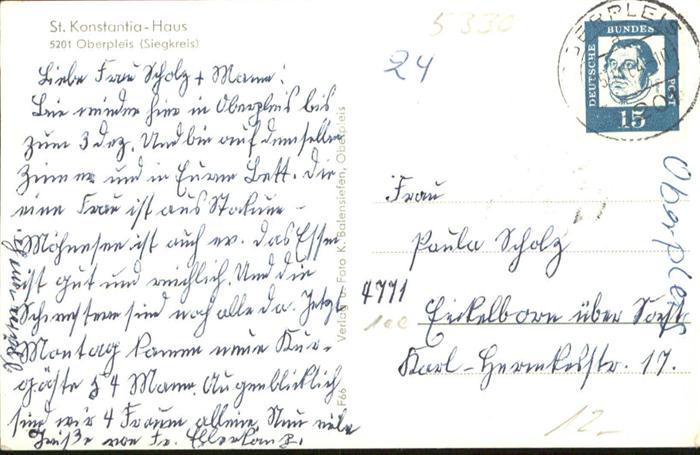 St. Konstantia-Haus
5201 Oberpleis (Siegkreis)
Liebe Frau Scholz + Mann!
Bin wieder hier in Oberpleis bis
zum 3 Dez. Und bin auf demselben
Zimmer und in Eurem Bett. Die
eine Frau ist aus Stockum-
Möhnesee ist auch ev. das Essen
ist gut und reichlich. Und die
Schwestern sind noch alle da. Jetzt
Montag kamen neue Kur-
gäste 4 Mann. Augenblicklich
sind wir 4 Frauen alleine. Nun viele
Grüße von Fr.
F66 Verlag u. Foto K. Balensiefen, Oberpleis
5330
24
OBERPLEIS
DEUTSCHE BUNDESPOST
15
Frau
Paula Scholz
4771
Eickelborn über Soest
Karl-Hermkesstr. 17.
Oberpleis
100
12.-